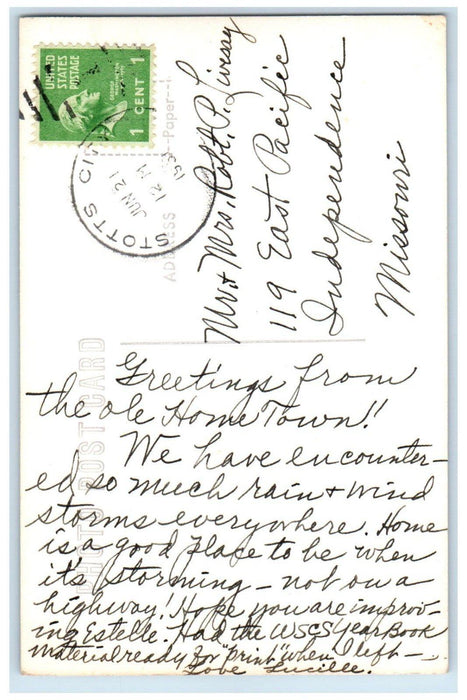 UNITED
STATES
POSTAGE
1 CENT 1
STOTTS CITY
JUN 21
12 M
ADDRESS
Paper
Mr. & Mrs. Robt. P. Livesay
119 East Pacific
Independence
Missouri
PHOTO POST CARD
Greetings from
the ole Home Town!
We have encounter-
ed so much rain & wind
storms everywhere. Home
is a good place to be when
it's storming - not on a
highway! Hope you are improv-
ing Estelle. Had the WSCS Year Book
material ready for "print" when I left -
Love Lucille.